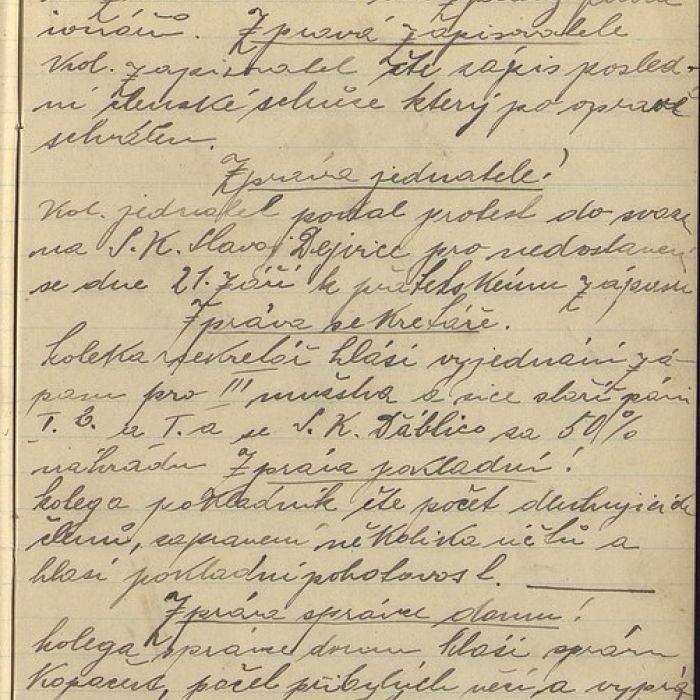 ionářů. Zpráva zapisovatele
Kol. zapisovatel čte zápis posled-
ní členské schůze který po opravě
schválen.
Zpráva jednatele!
Kol. jednatel podal protest do svazu
na S.K. Slavoj Dejvice pro nedostavení
se dne 21. září k přátelskému zápasu
Zpráva sekretáře.
kolega sekretář hlásí vyjednání zá-
pasu pro III mužstva a sice staří páni
I. B. a I. a se S.K. Ďáblice za 50%
náhradu Zpráva pokladní!
kolega pokladník čte počet dlužnících
členů, zapravení několika účtů a
hlásí pokladní pohotovost.
Zpráva správce domu!
kolega správce domu hlásí správu
kopaček, počet přibylých věcí a vyprá